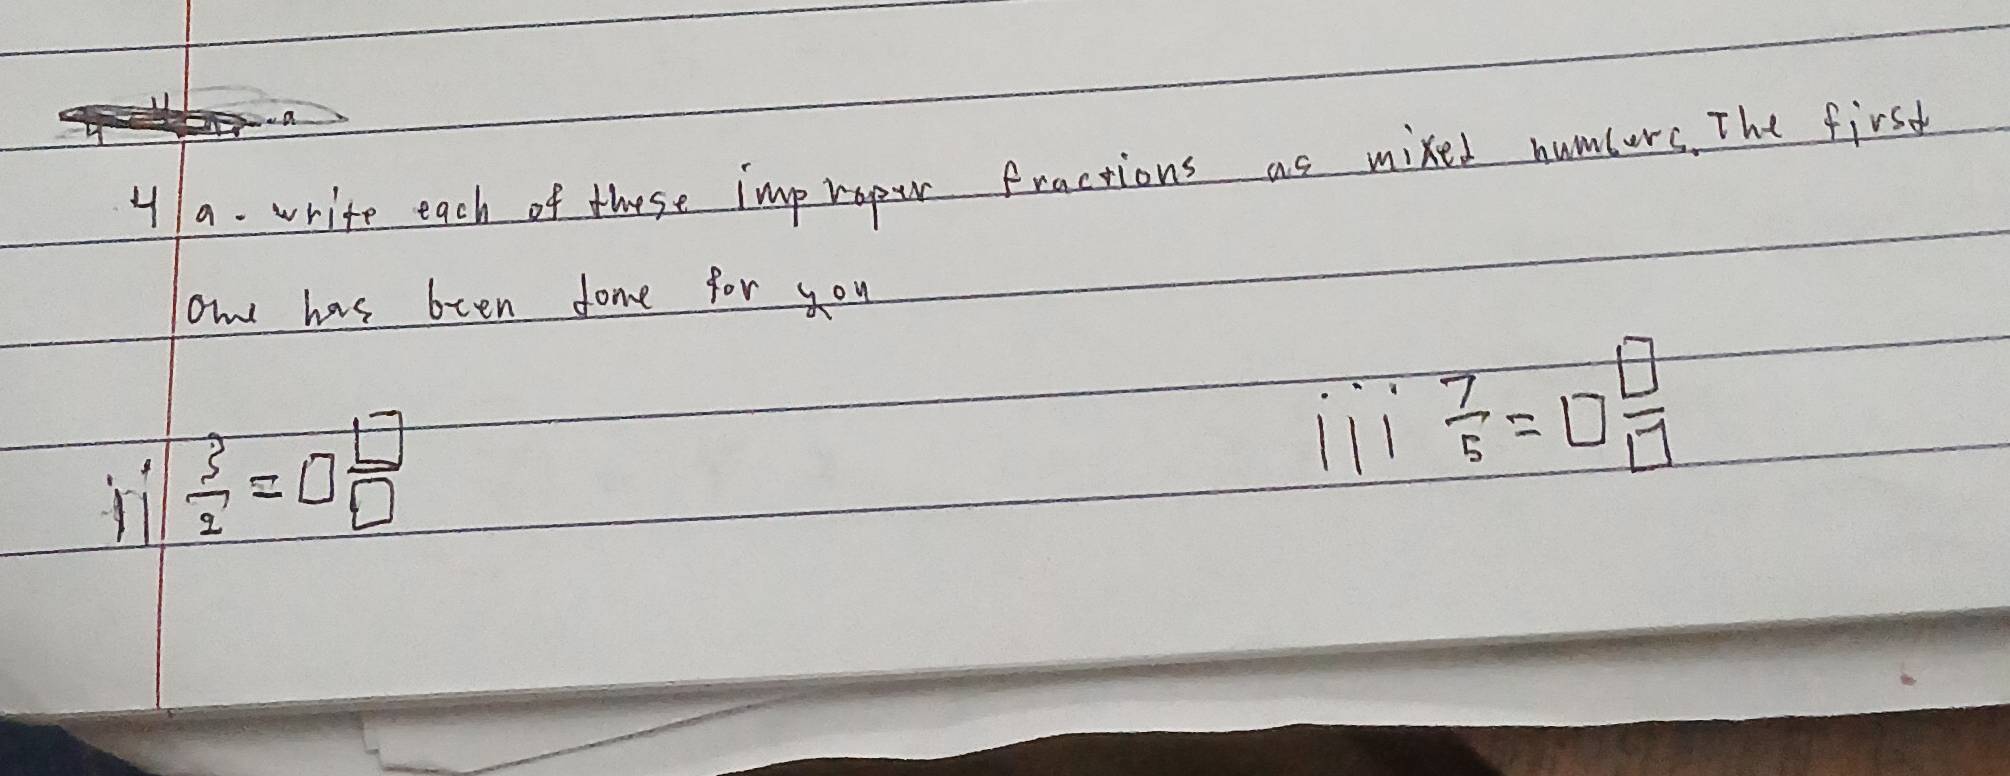 4 a. write each of these improper fractions as mixed numbers. The first
one has been done for you
ii 3/2 = □ □/□
iii 7/5 = □ □/□